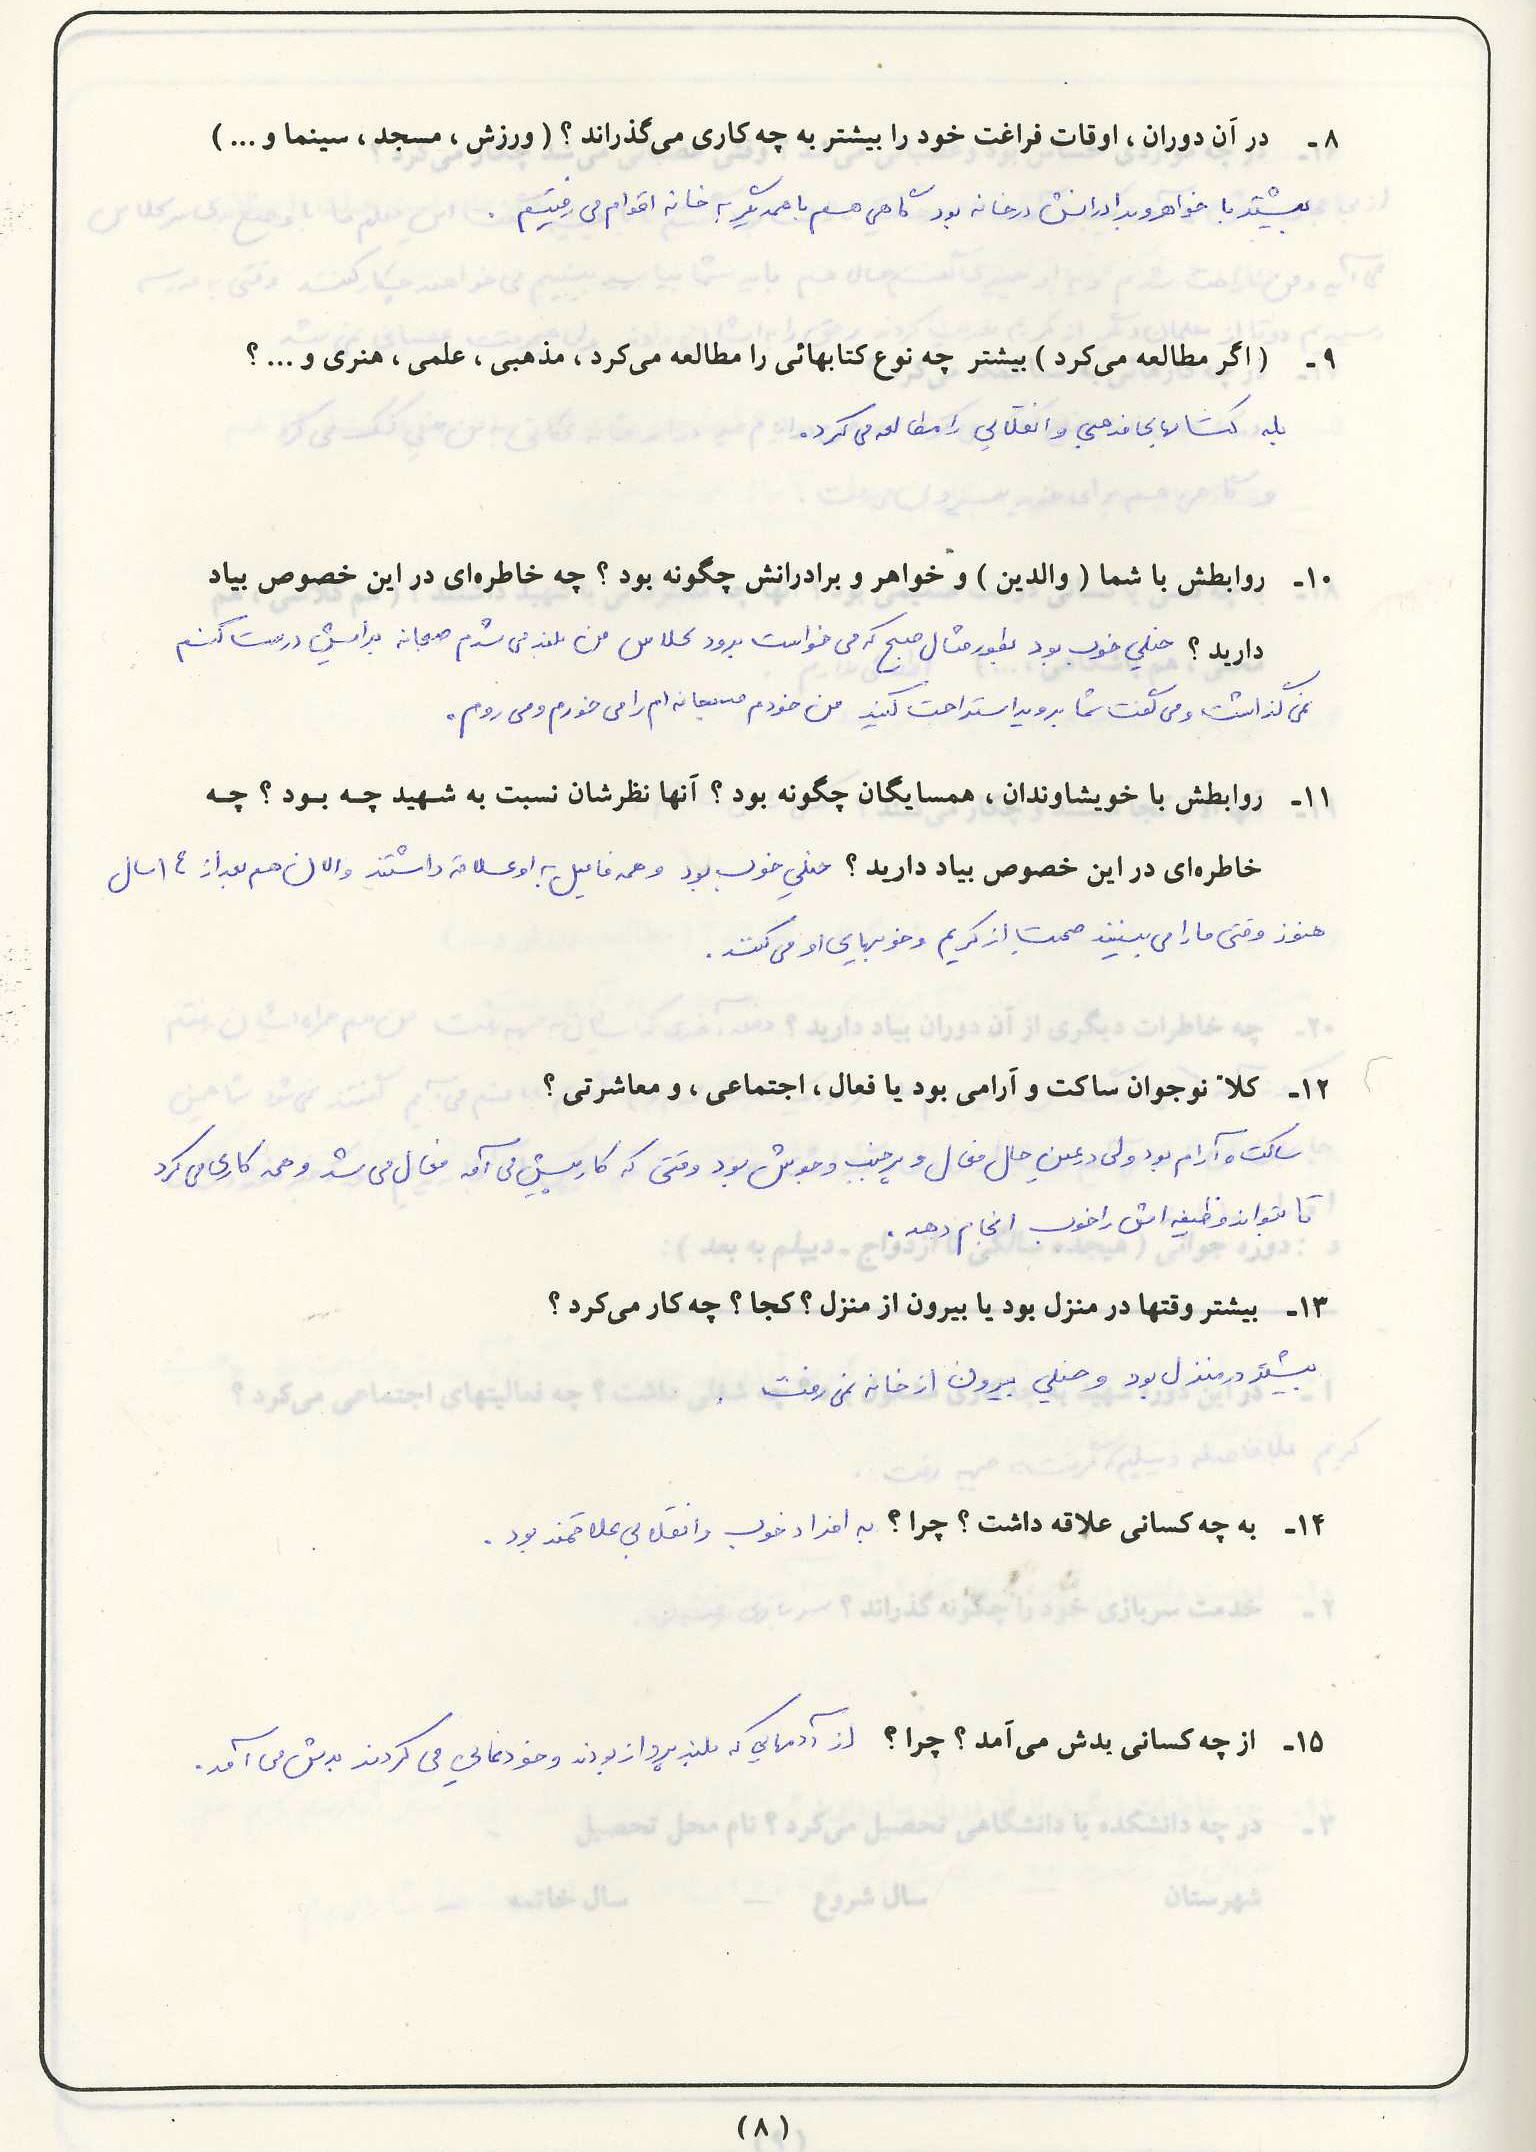 ۸ـ در آن دوران ، اوقات فراغت خود را بیشتر به چه کاری می‌گذراند ؟ ( ورزش ، مسجد ، سینما و ... )
بیشتر با خواهر و برادرانش در خانه بود گاهی هم با همدیگر به خانه اقوام می رفتیم .
۹ـ ( اگر مطالعه می‌کرد ) بیشتر چه نوع کتابهائی را مطالعه می‌کرد ، مذهبی ، علمی ، هنری و ... ؟
بله کتابهای مذهبی و انقلابی را مطالعه می کرد .
۱۰ـ روابطش با شما ( والدین ) و خواهر و برادرانش چگونه بود ؟ چه خاطره‌ای در این خصوص بیاد
دارید ؟ خیلی خوب بود بطور مثال صبح که می خواست برود کلاس من بلند می شدم صبحانه برایش درست کنم
نمی گذاشت و می گفت شما بروید استراحت کنید من خودم صبحانه ام را می خورم و می روم .
۱۱ـ روابطش با خویشاوندان ، همسایگان چگونه بود ؟ آنها نظرشان نسبت به شهید چه بود ؟ چه
خاطره‌ای در این خصوص بیاد دارید ؟ خیلی خوب بود و همه فامیل به او علاقه داشتند والان هم بعد از ۱۴ سال
هنوز وقتی ما را می بینند صحبت از کریم و خوبیهای او می کنند .
۱۲ـ کلاً نوجوان ساکت و آرامی بود یا فعال ، اجتماعی ، و معاشرتی ؟
ساکت و آرام بود ولی در عین حال فعال و پر جنب و جوش بود وقتی که کار پیش می آمد فعال می شد و همه کاری می کرد
تا بتواند وظیفه اش را خوب انجام دهد .
۱۳ـ بیشتر وقتها در منزل بود یا بیرون از منزل ؟ کجا ؟ چه کار می‌کرد ؟
بیشتر در منزل بود و خیلی بیرون از خانه نمی رفت .
۱۴ـ به چه کسانی علاقه داشت ؟ چرا ؟ به افراد خوب و انقلابی علاقمند بود .
۱۵ـ از چه کسانی بدش می‌آمد ؟ چرا ؟ از آدمهایی که بلند پرواز بودند و خودنمایی می کردند بدش می آمد .
( ۸ )